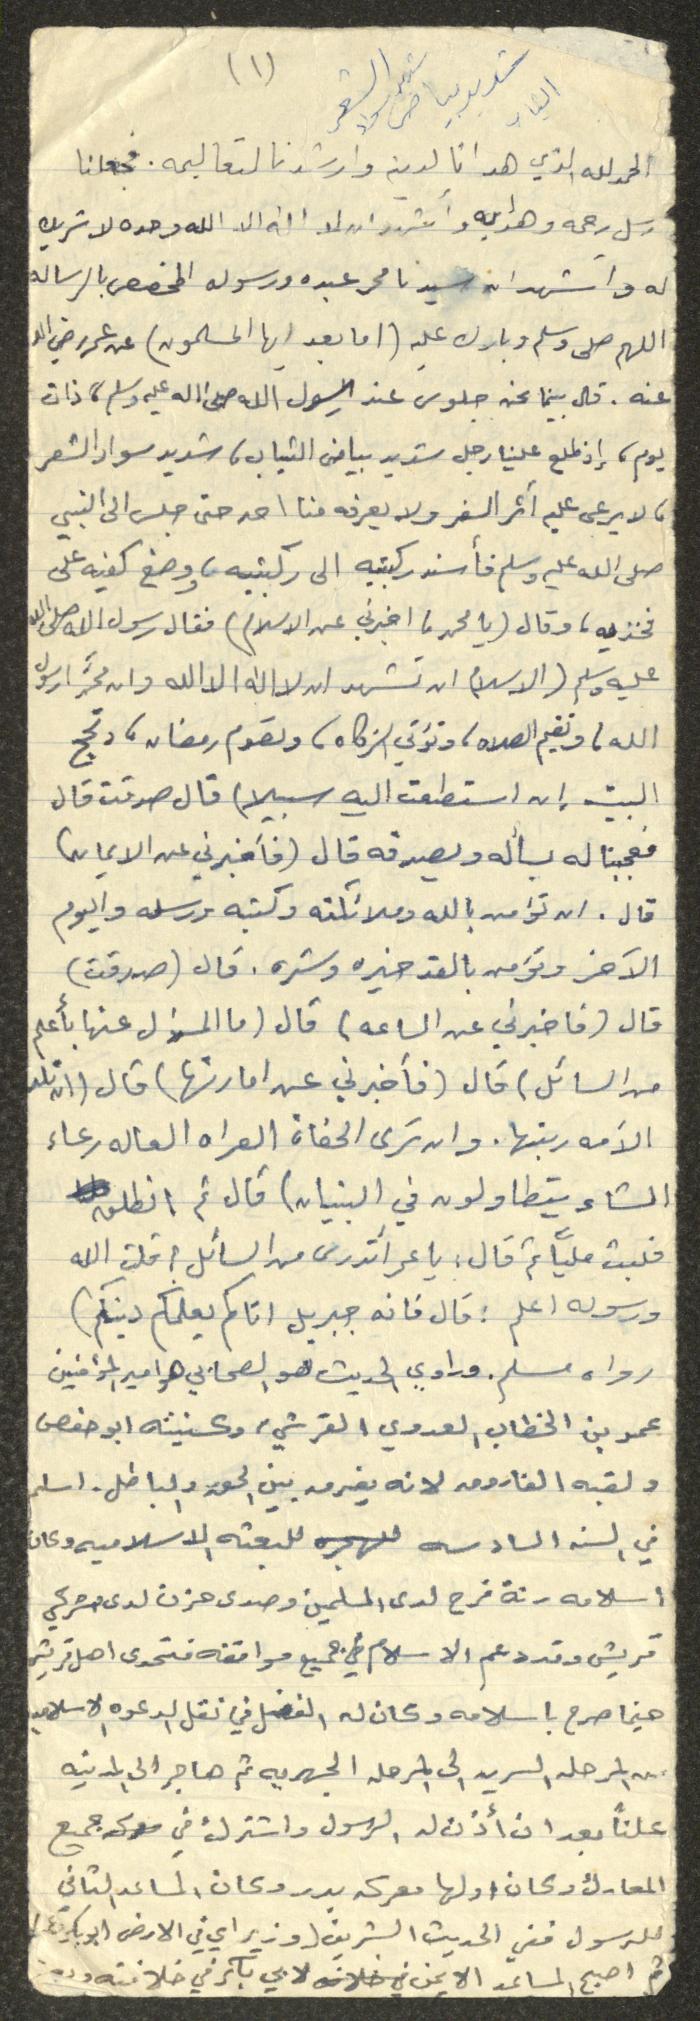 (١)
شديد بياض الثياب
شديد سواد الشعر
الحمد لله الذي هدانا لدينه وارشدنا لتعاليمه. فجعلنا
رسل رحمه وهدايه وأشهد ان لا اله الا الله وحده لا شريك
له وأشهد ان سيدنا محمد عبده ورسوله المخصص بالرساله
اللهم صلى وسلم وبارك عليه (اما بعد ايها المسلمون) عن عمر رضي الله
عنه. قال بينما نحن جلوس عند الرسول الله صلى الله عليه وسلم، ذات
يوم، إذ طلع علينا رجل شديد بياض الثياب، شديد سواد الشعر
، لا يرعى عليه أثر السفر ولا يعرفه منا احد حتى جلس الى النبي
صلى الله عليه وسلم فأسند ركبتيه الى ركبتيه، ووضع كفيه على
فخذيه، وقال (يا محمد، اخبرني عن الاسلام) فقال رسول الله صلى الله
عليه وسلم (الاسلام ان تشهد ان لا اله الا الله وان محمداً رسول
الله، وتقيم الصلاه، وتؤتي الزكاه، وتصوم رمضان، وتحج
البيت إن استطعت اليه سبيلا) قال صدقت قال
فعجبنا له يسأله ويصدقه قال (فأخبرني عن الايمان)
قال. ان تؤمن بالله وملائكته وكتبه ورسله واليوم
الآخر وتؤمن بالقدر خيره وشره. قال (صدقت)
قال (فاخبرني عن الساعه) قال (ما المسؤل عنها بأعلم
من السائل) قال (فأخبرني عن اماراتها) قال (ان تلد
الأمه ربتها. وان ترى الحفاة العراه العاله رعاء
الشاء يتطاولون في البنيان) قال ثم انطلق
فلبث مليًّا ثم قال: يا عمر أتدرى من السائل؟ قلت الله
ورسوله اعلم: قال فانه جبريل اتاكم يعلمكم دينكم)
رواه مسلم. وراوي الحديث هو الصحابي هو امير المؤمنين
عمر بن الخطاب العدوي القرشي، وكنيته ابو حفص
ولقبه الفاروق لانه يفرق بين الحق والباطل. اسلم
في السنه السادسه للبعثه الاسلاميه وكان
اسلامه رنة فرح لدى المسلمين وصدى حزن لدى مشركي
قريش وقد دعم الاسلام في جميع مواقفه فتحدى اهل قريش
حينما صرح باسلامه وكان له الفضل في نقل الدعوه الاسلاميه
من المرحله السريه الى المرحله الجهريه ثم هاجر الى المدينه
علناً بعد ان أذن له الرسول واشترك في جميع
المعارك وكان اولها معركه بدر وكان المساعد الثاني
للرسول ففي الحديث الشريف (وزيراي في الارض ابو بكر وعمر)
ثم اصبح المساعد الايمن لابي بكر في خلافته